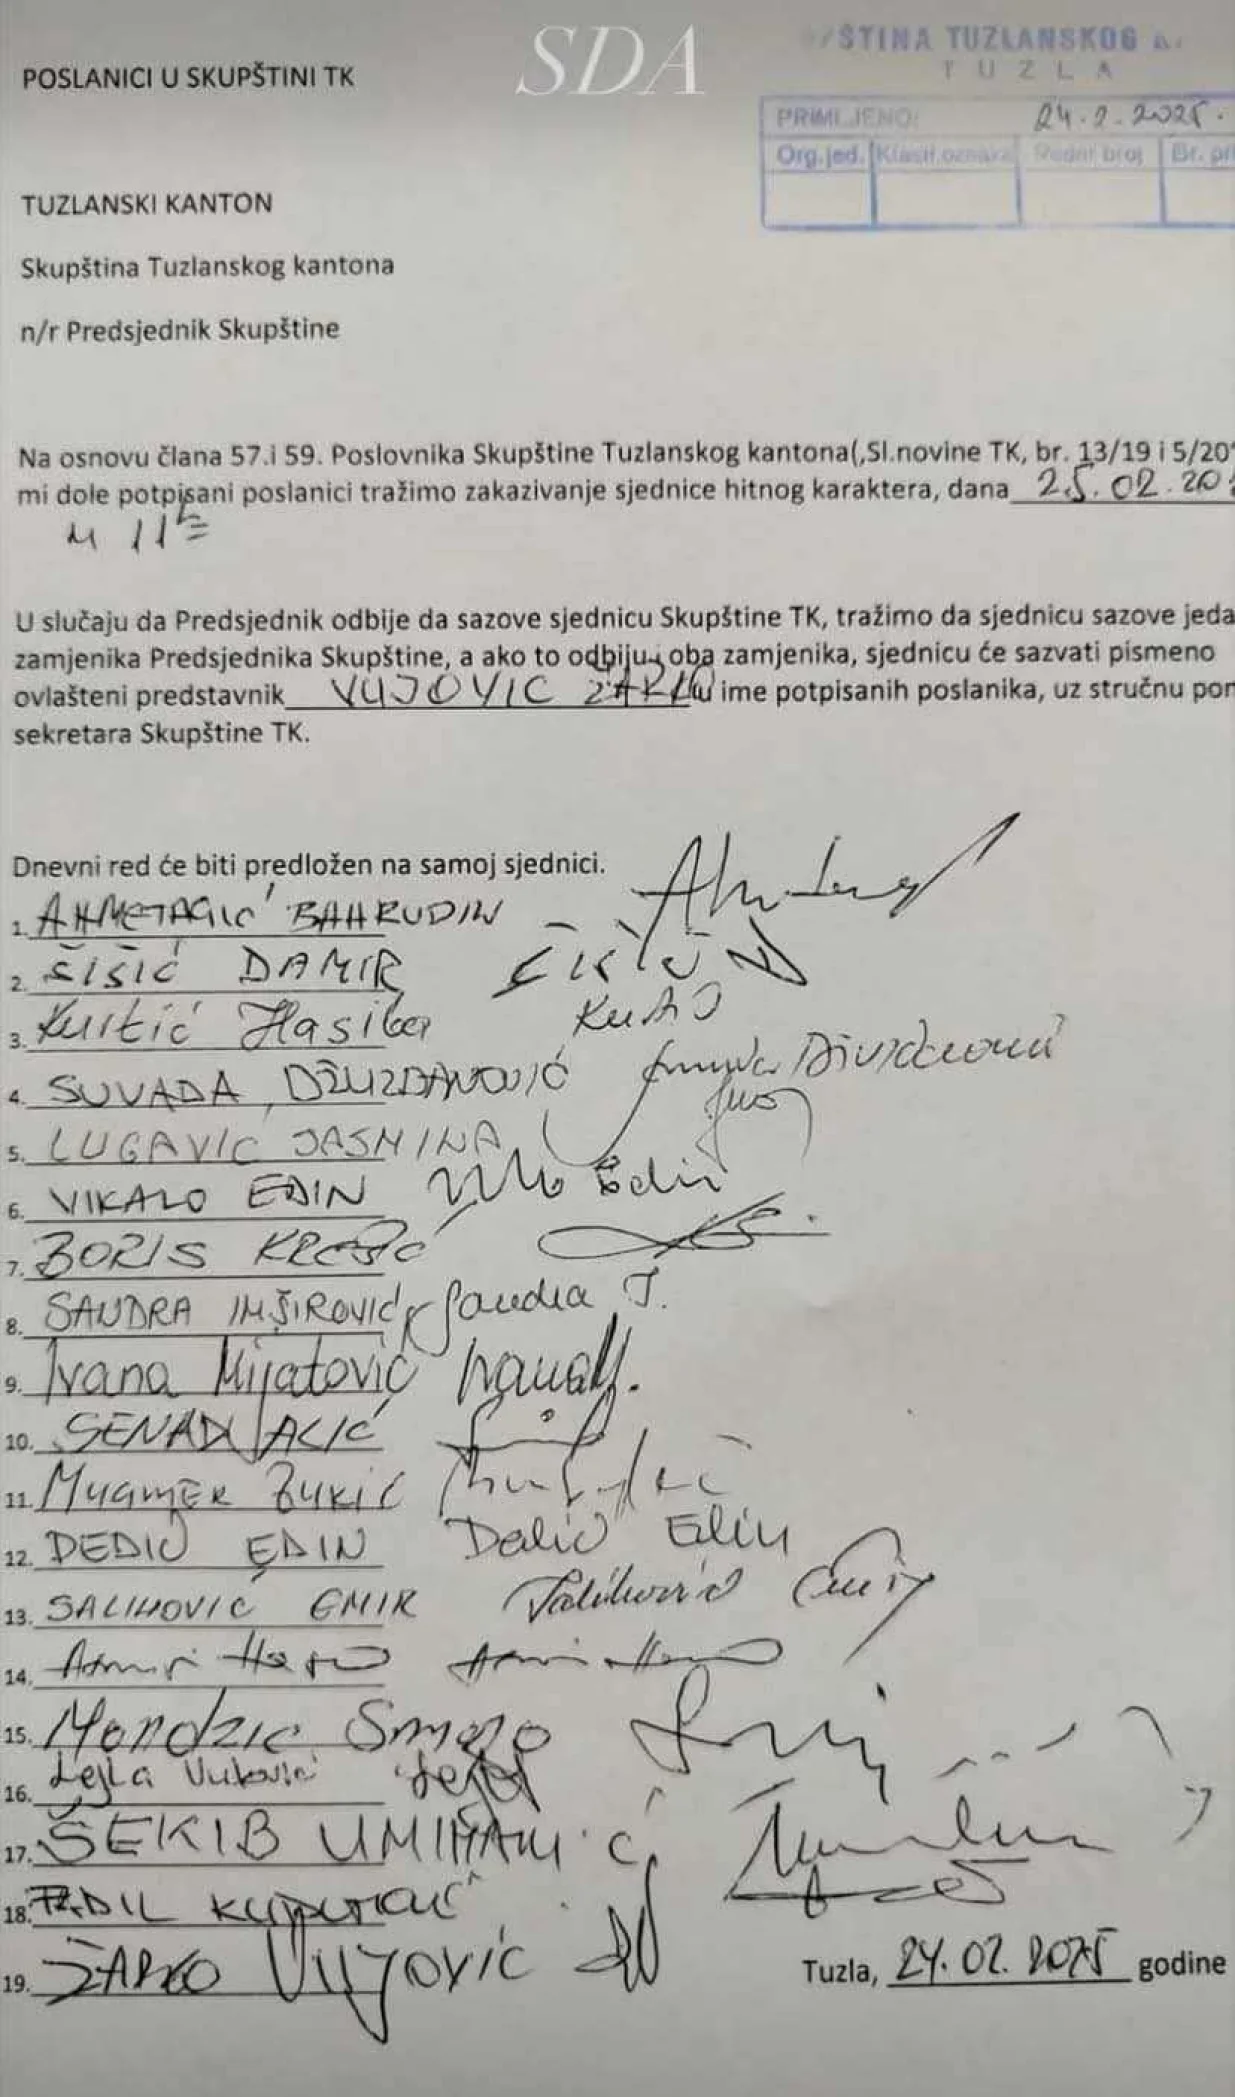 SDA
POSLANICI U SKUPŠTINI TK
ŠTINA TUZLANSKOG
TUZLA
PRIMLJENO: 24.2.2025.
Org.jed. Klasif.oznaka Redni broj Br. pri
TUZLANSKI KANTON
Skupština Tuzlanskog kantona
n/r Predsjednik Skupštine
Na osnovu člana 57.i 59. Poslovnika Skupštine Tuzlanskog kantona(,Sl.novine TK, br. 13/19 i 5/20
mi dole potpisani poslanici tražimo zakazivanje sjednice hitnog karaktera, dana 25.02.20
u 11
U slučaju da Predsjednik odbije da sazove sjednicu Skupštine TK, tražimo da sjednicu sazove jeda
zamjenika Predsjednika Skupštine, a ako to odbiju oba zamjenika, sjednicu će sazvati pismeno
ovlašteni predstavnik VUJOVIC ŽARKO u ime potpisanih poslanika, uz stručnu pom
sekretara Skupštine TK.
Dnevni red će biti predložen na samoj sjednici.
1. AHMETAGIĆ BAHRUDIN
2. ŠIŠIĆ DAMIR
3. Kurtić Hasiba
4. SUVADA DŽUZDANOVIĆ
5. LUGAVIC JASMINA
6. VIKALO EDIN Edin
7. BORIS KREŠIĆ
8. SANDRA IMŠIROVIĆ Sandra I.
9. Ivana Mijatović Ivana M.
10. SENAD ALIĆ
11. MUAMER ZUKIĆ
12. DEDIĆ EDIN Dedić Edin
13. SALIHOVIĆ EMIR Salihović Emir
14. Admir
15. Mandzic Smajo
16. Lejla Vuković Lejla
17. ŠEKIB UMIHANIĆ
18. FADIL
19. ŽARKO VUJOVIĆ
Tuzla, 24.02.2025 godine